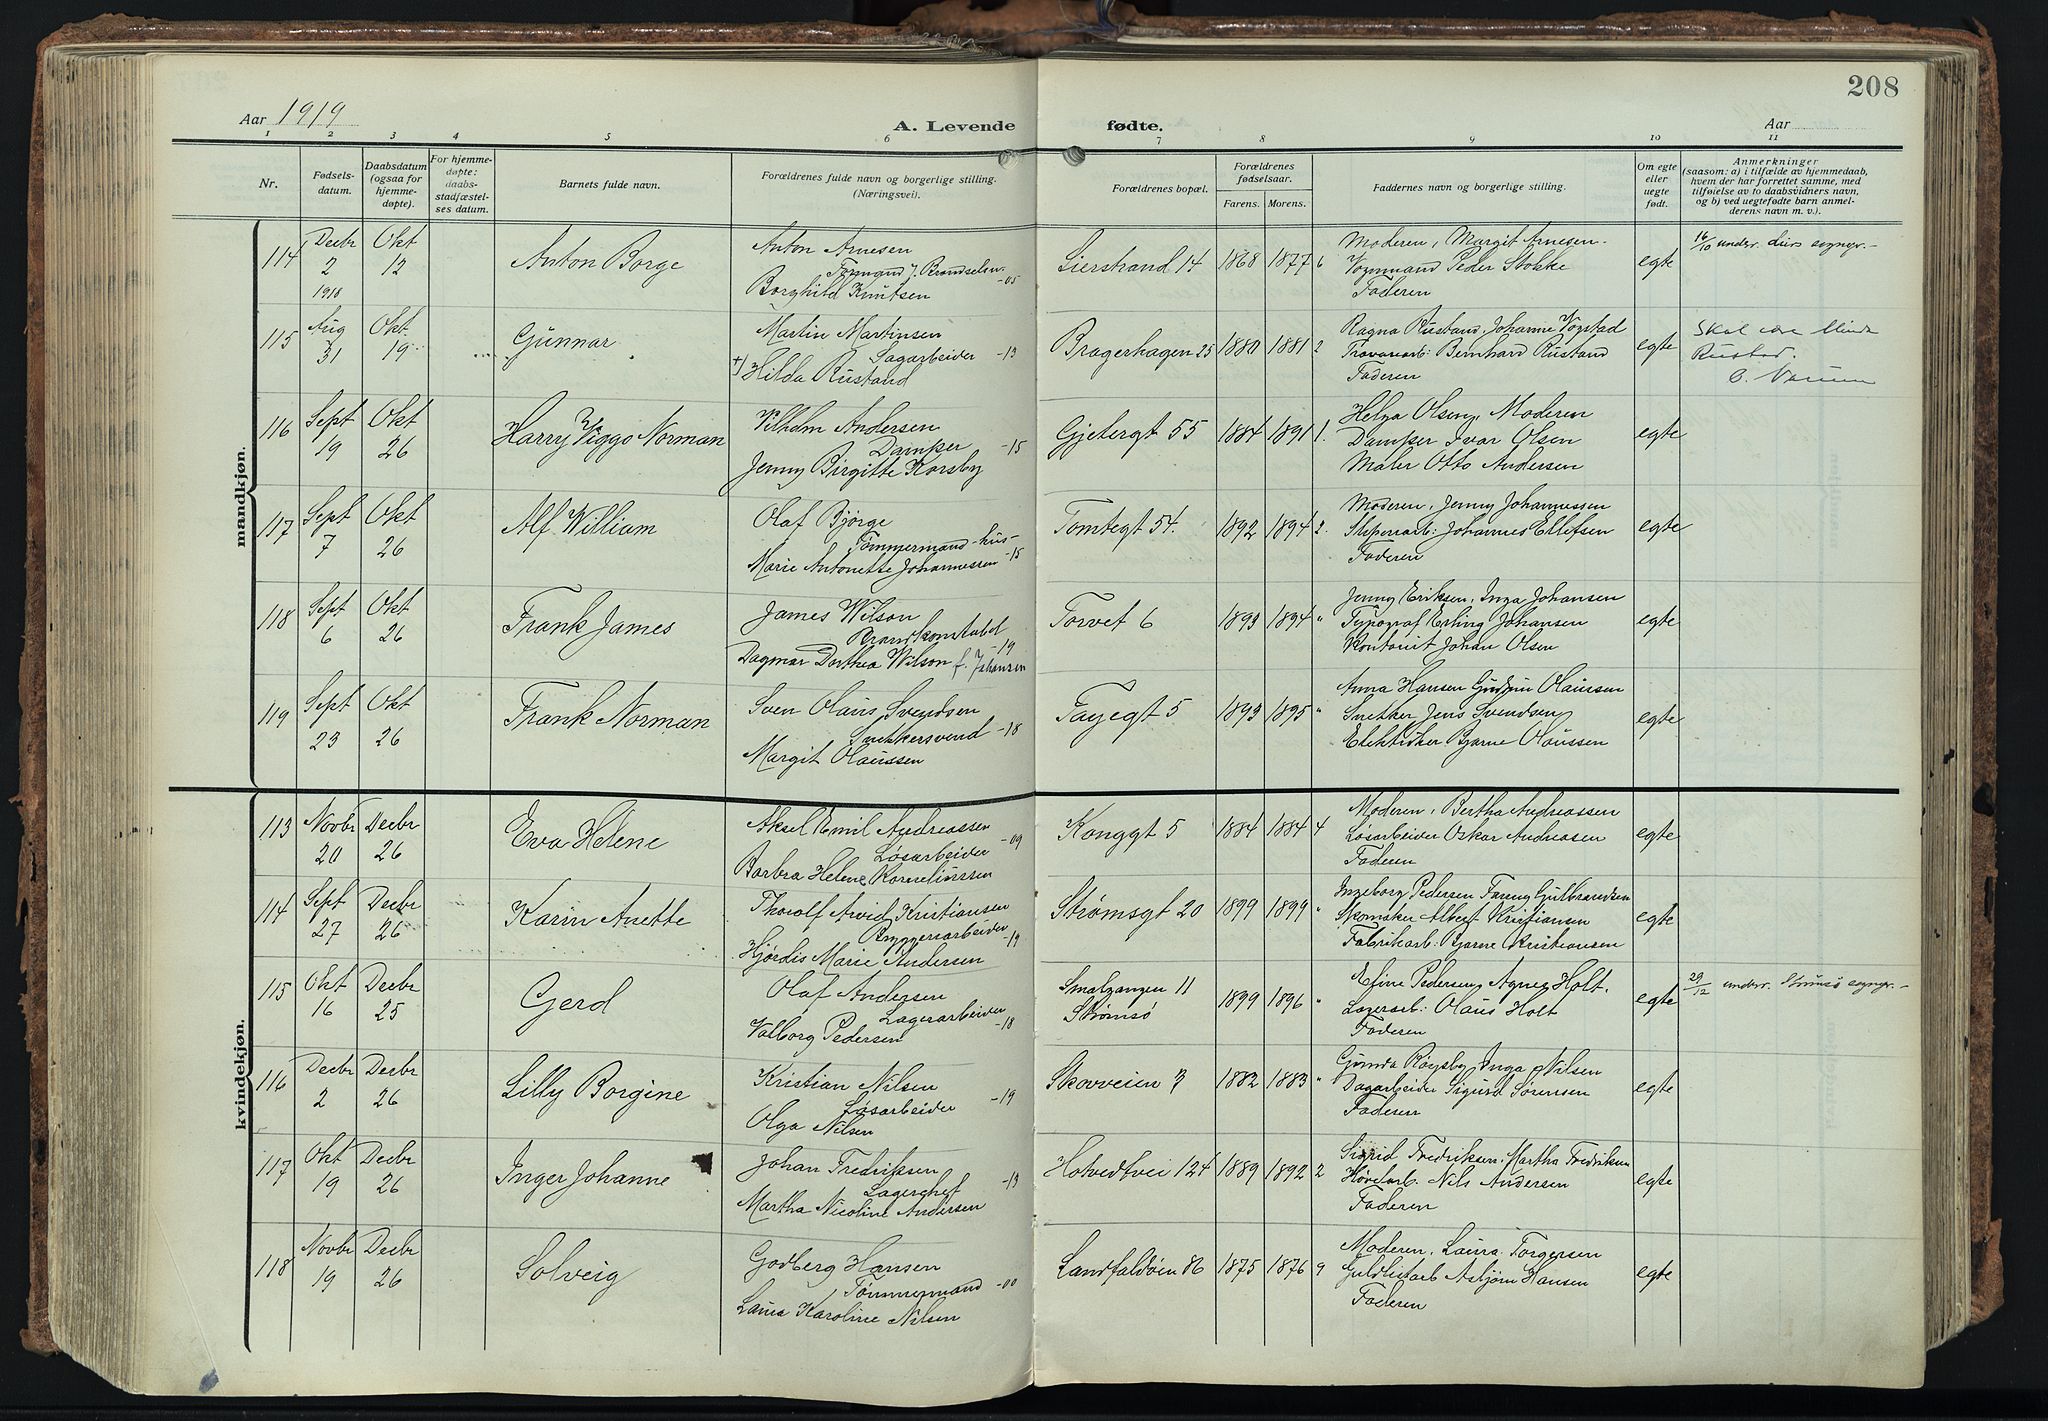 208
Aar 1919
A. Levende fødte.
Aar
1 2 3 4 5 6 7 8 9 10 11
Nr.
Fødsels-
datum.
Daabsdatum
(ogsaa for
hjemme-
døpte).
For hjemme-
døpte:
daabs-
stadfæstel-
ses datum.
Barnets fulde navn.
Forældrenes fulde navn og borgerlige stilling.
(Næringsvei).
Forældrenes bopæl.
Forældrenes
fødselsaar.
Farens. Morens.
Faddernes navn og borgerlige stilling.
Om egte
eller
uegte
født.
Anmerkninger
(saasom: a) i tilfælde av hjemmedaab,
hvem der har forrettet samme, med
tilføielse av to daabsvidners navn,
og b) ved uegtefødte barn anmel-
derens navn m. v.).
mandkjøn.
114
Decbr
2
1918
Okt
12
Anton Borge
Anton Arnesen
Borghild Knutsen
-05
Lierstrand 14
1868 1877 6
Moderen, Margit Arnesen.
Vognmand Peder Stokke
Faderen
egte
16/10 underr. Liers sogngr.-
115
Aug
31
Okt
19
Gunnar
Martin Martinsen
Sagarbeider -13
+) Hilda Rustand
Bragerhagen 25
1880 1881 2
Ragna Rustand, Johanne Vogstad
Bernhard Rustand
Faderen
egte
Skal være
Rustad.
116
Sept
19
Okt
26
Harry Viggo Norman
Vilhelm Andersen
Damper -15
Jenny Birgitte Korsby
Gjetergt 55
1884 1891 1.
Helga Olsen, Moderen
Damper Ivar Olsen
Maler Otto Andersen
egte
117
Sept
7
Okt
26
Alf William
Olaf Bjørge
Tømmermand -hus-
Marie Antonette Johannessen -15
Tomtegt 54.
1892 1894 2.
Moderen, Jenny Johannessen
Sliperiarb: Johannes Ellefsen
Faderen
egte
118
Sept
6
Okt
26
Frank James
James Wilson
Brandkonstabel
-19
Dagmar Dorthea Wilson f. Johansen
Torvet 6
1893 1894 "
Jenny Eriksen, Inga Johansen
Typograf Erling Johansen
Kontorist Johan Olsen
egte
119
Sept
23
Okt
26
Frank Norman
Sven Olaus Svendsen
Snekkersvend -18
Margit Olaussen
Fayegt 5
1893 1895 "
Anna Hansen Gudrun Olaussen
Snekker Jens Svendsen
Elektriker Bjarne Olaussen
egte
kvindekjøn.
113
Novbr
20
Decbr
26
Eva Helene
Aksel Emil Andreassen
Løsarbeider -09
Barbra Helene Korneliussen
Konggt 5
1884 1884 4
Moderen, Bertha Andreassen
Løsarbeider Oskar Andreasen
Faderen
egte
114
Sept
27
Decbr
26
Karin Anette
Thorolf Arvid Kristiansen
Bryggeriarbeider -19
Hjørdis Marie Andersen
Strømsgt 20
1899 1899 "
Ingeborg Pedersen Fanny Gulbrandsen
Skomaker Albert Kristiansen
Fabrikarb: Bjarne Kristiansen
egte
115
Okt
16
Decbr
25
Gerd
Olaf Andersen
Lagerarbeider -18
Valborg Pedersen
Smalgangen 11
Strømsø
1899 1896 "
Eline Pedersen, Agnes Holt.
Lagerarb: Olaus Holt
Faderen
egte
29/12 underr. Strømsø sogngr.-
116
Decbr
2
Decbr
26
Lilly Borgine
Kristian Nilsen
Løsarbeider -19
Olga Nilsen
Skovveien 7
1882 1883 "
Gunda Røysby, Inga Nilsen
Dagarbeider Sigurd Sørensen
Faderen
egte
117
Okt
19
Decbr
26
Inger Johanne
Johan Fredriksen
Lagerchef -13
Martha Nicoline Andersen
Hotvedtvei 124
1889 1892 2
Sigrid Fredriksen, Martha Fredriksen
Høvelarb. Nils Andersen
Faderen
egte
118
Novbr
19
Decbr
26
Solveig
Godberg Hansen
Tømmermand -00
Laura Karoline Nilsen
Landfaldøien 86
1875 1876 9
Moderen, Laura Torgersen
Guldlistarb Asbjørn Hansen
Faderen
egte